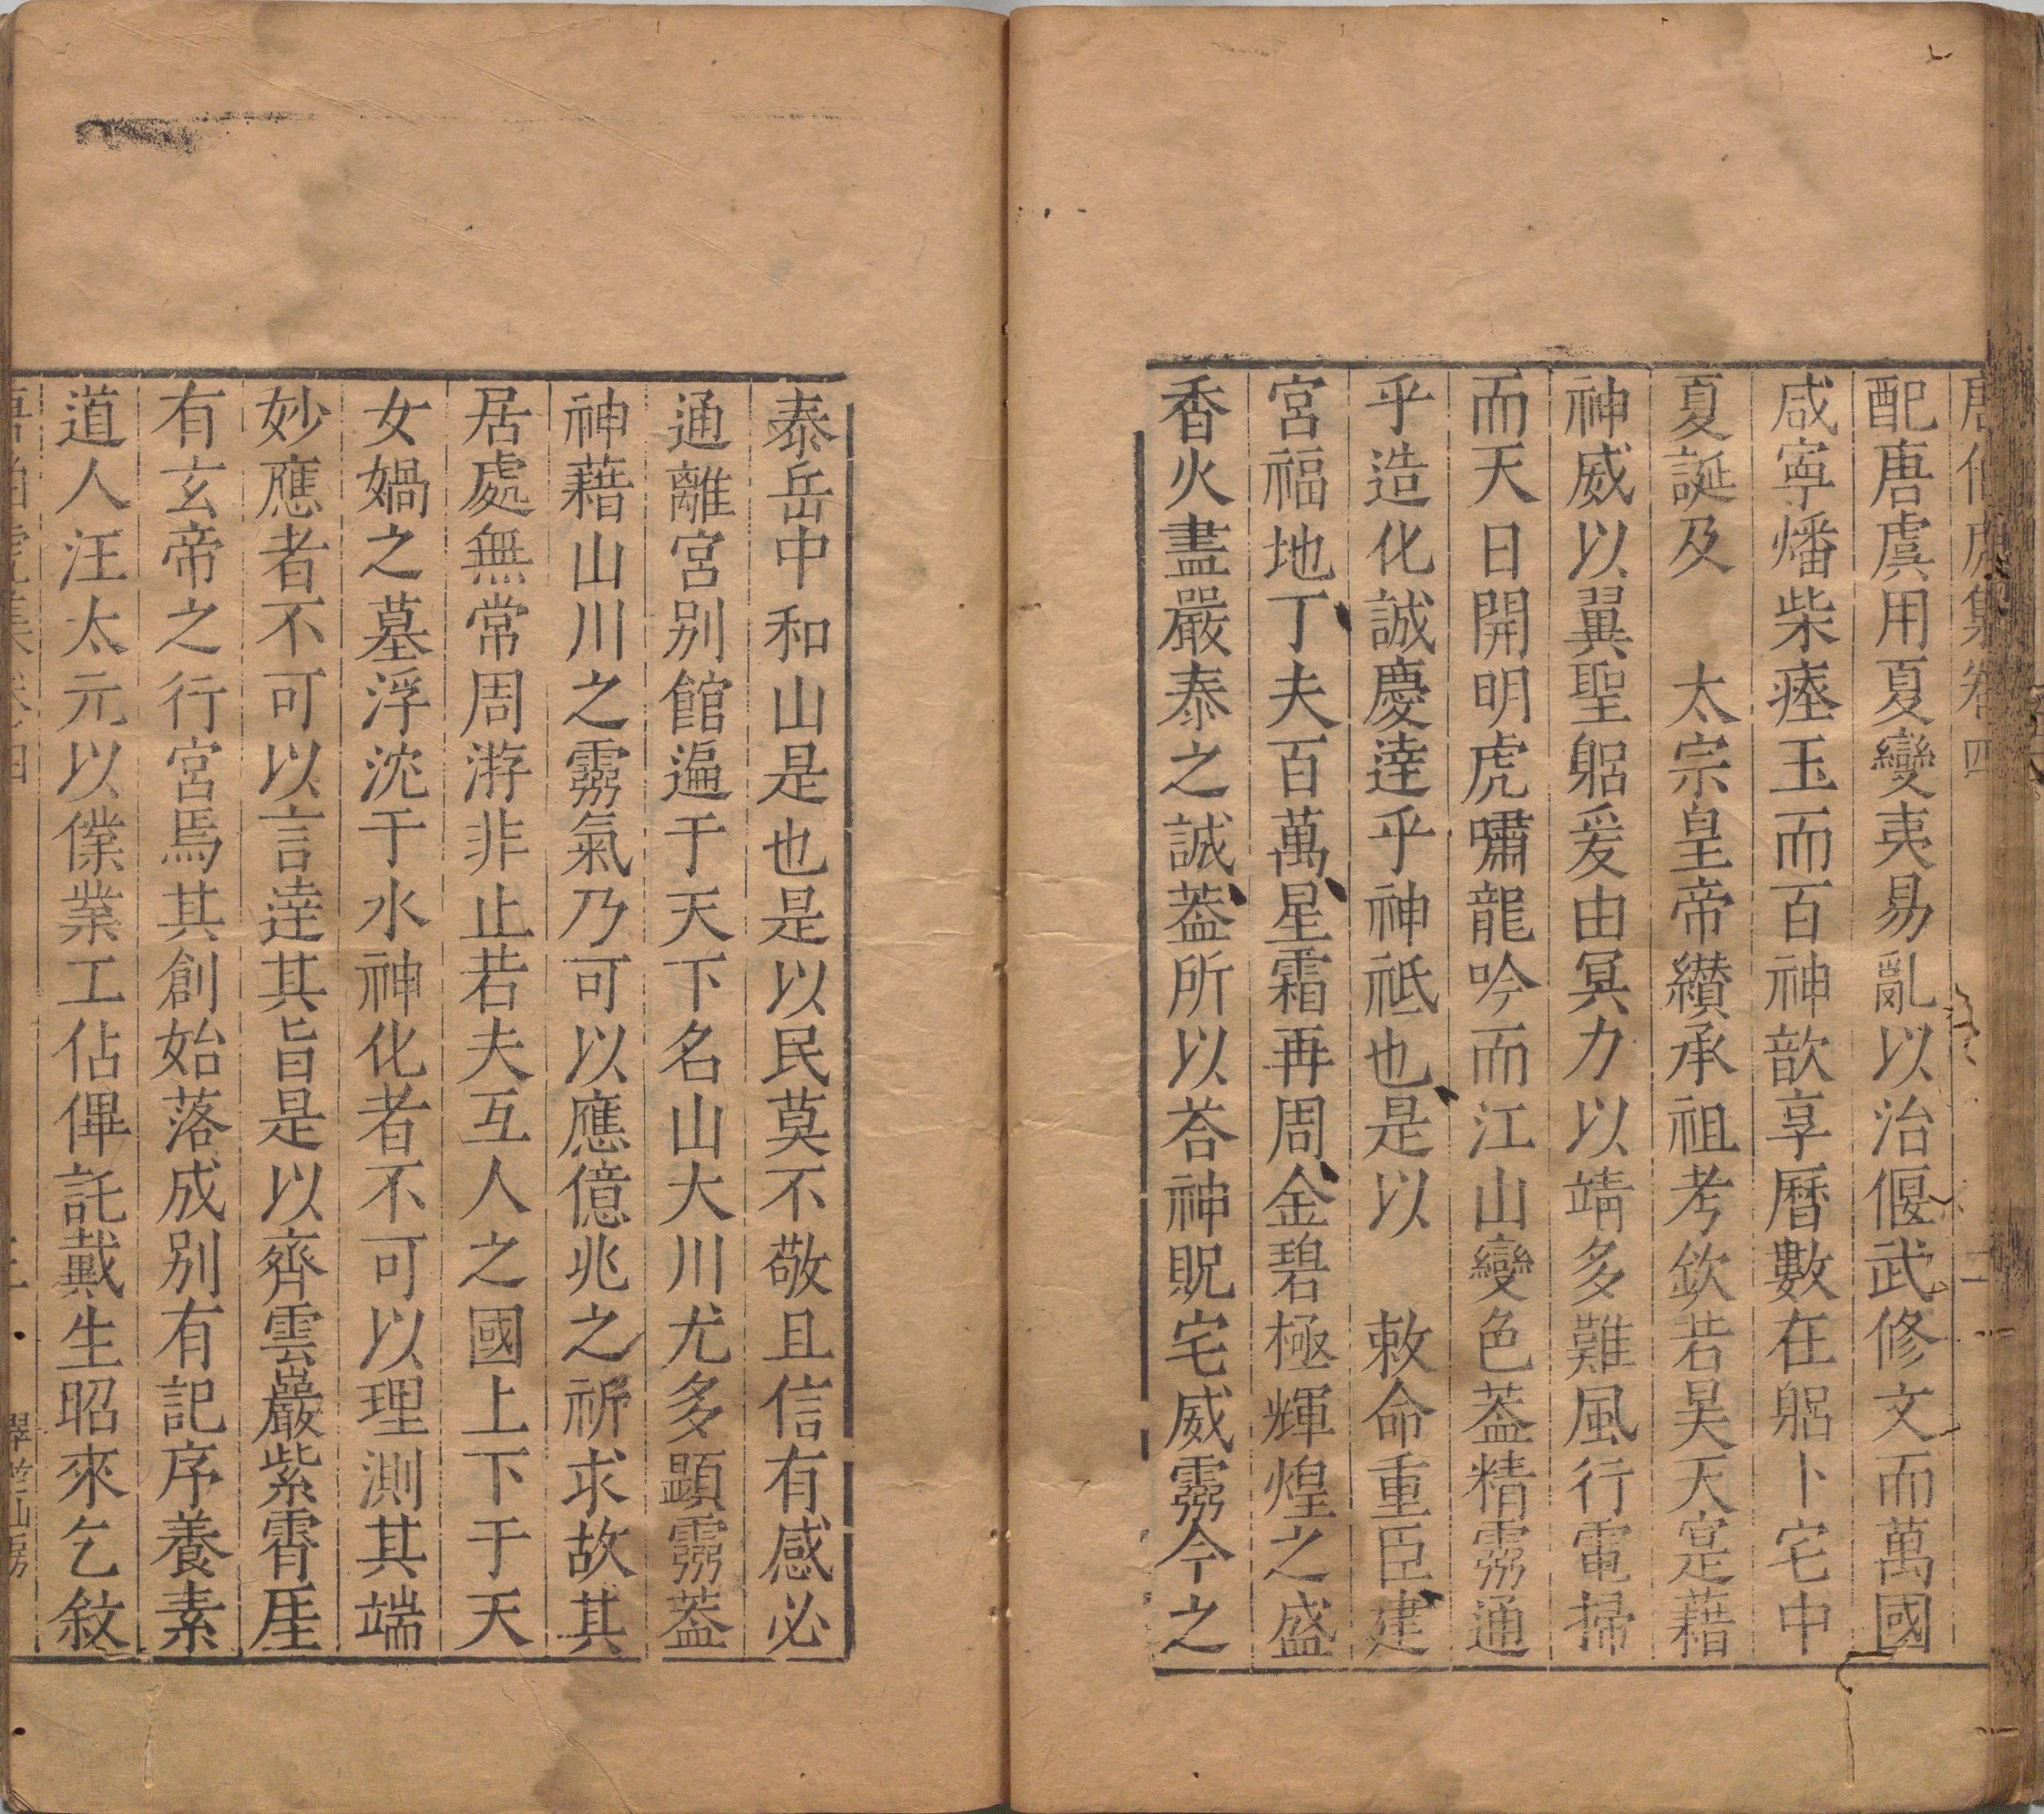 唐伯虎集卷四 二
配唐虞用夏變夷易亂以治偃武修文而萬國
咸寧燔柴瘞玉而百神歆享曆數在躳卜宅中
夏誕及 太宗皇帝纉承祖考欽若昊天寔藉
神威以翼聖躳爰由冥力以靖多難風行電掃
而天日開明虎嘯龍吟而江山變色葢精霛通
乎造化誠慶達乎神祗也是以 敕命重臣建
宮福地丁夫百萬星霜再周金碧極輝煌之盛
香火盡嚴泰之誠葢所以荅神貺宅威霛今之
泰岳中和山是也是以民莫不敬且信有感必
通離宮别館遍于天下名山大川尤多顕霛葢
神藉山川之霛氣乃可以應億兆之祈求故其
居處無常周游非止若夫互人之國上下于天
女媧之墓浮沈于水神化者不可以理測其端
妙應者不可以言達其旨是以齊雲巖紫霄厓
有玄帝之行宮焉其創始落成别有記序養素
道人汪太元以僕業工佔俾託戴生昭來乞敘
唐伯虎集卷四